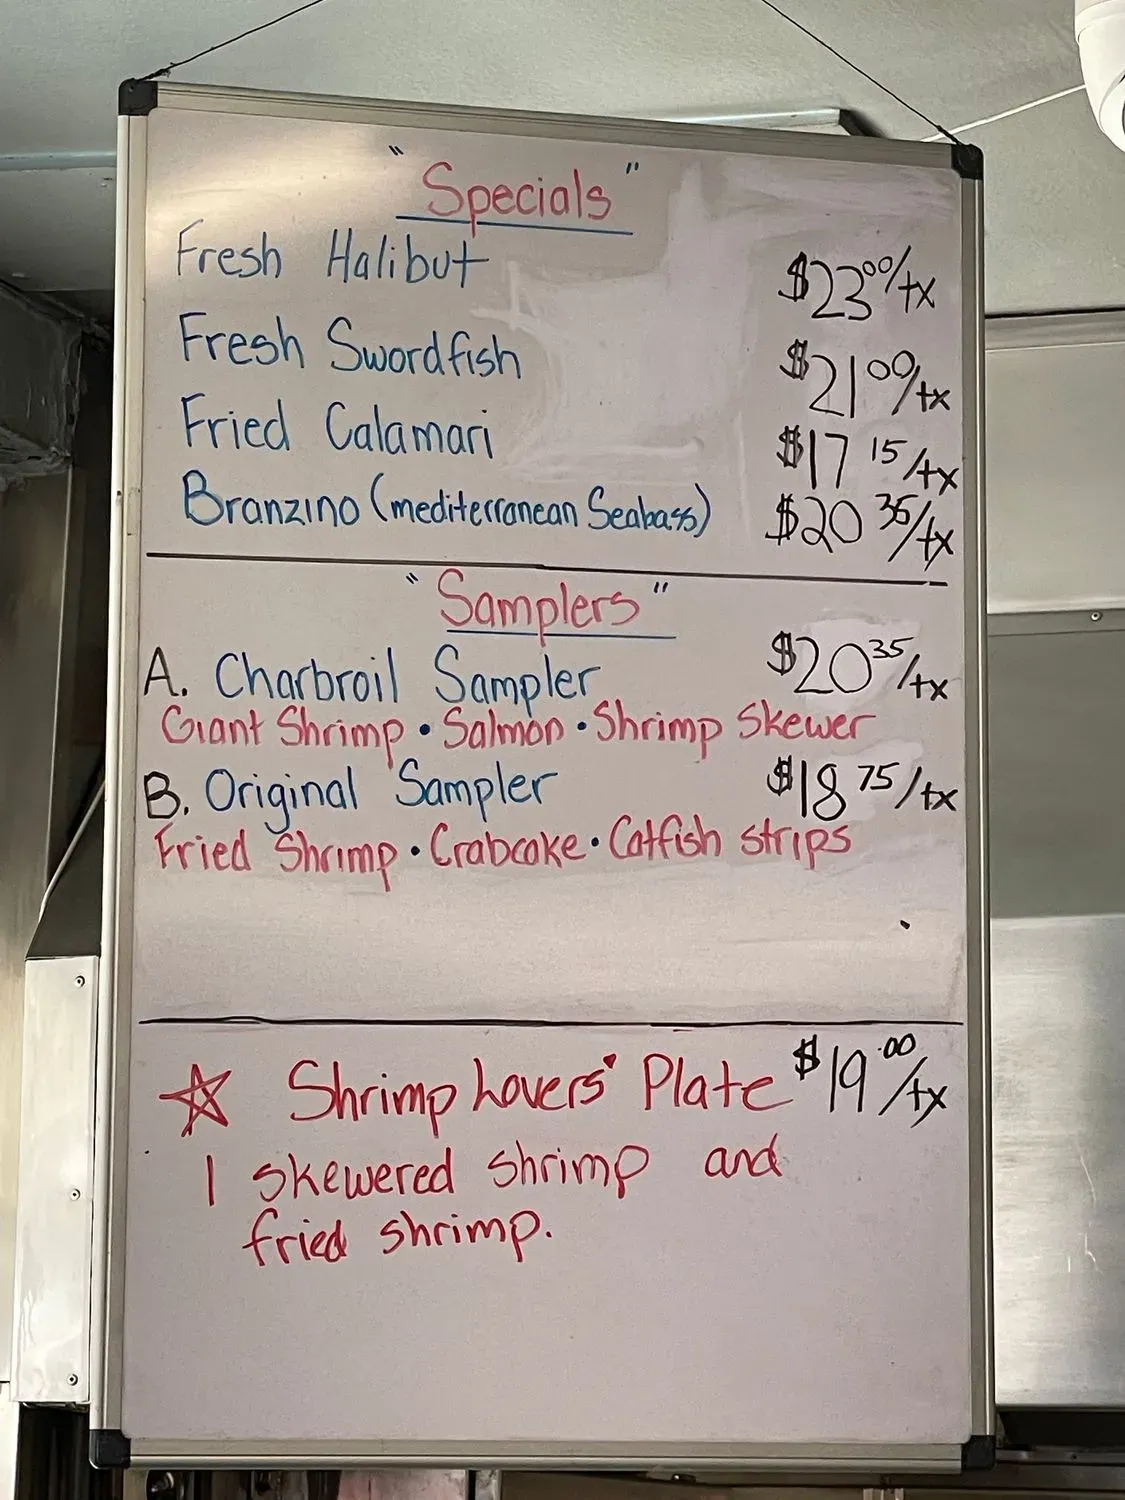 "Specials"
Fresh Halibut $23 00/tx
Fresh Swordfish $21 00/tx
Fried Calamari $17 15/tx
Branzino (mediterranean Seabass) $20 35/tx
"Samplers"
A. Charbroil Sampler $20 35/tx
Giant Shrimp • Salmon • Shrimp Skewer
B. Original Sampler $18 75/tx
Fried Shrimp • Crabcake • Catfish strips
☆ Shrimp Lovers' Plate $19.00/tx
1 skewered shrimp and
fried shrimp.